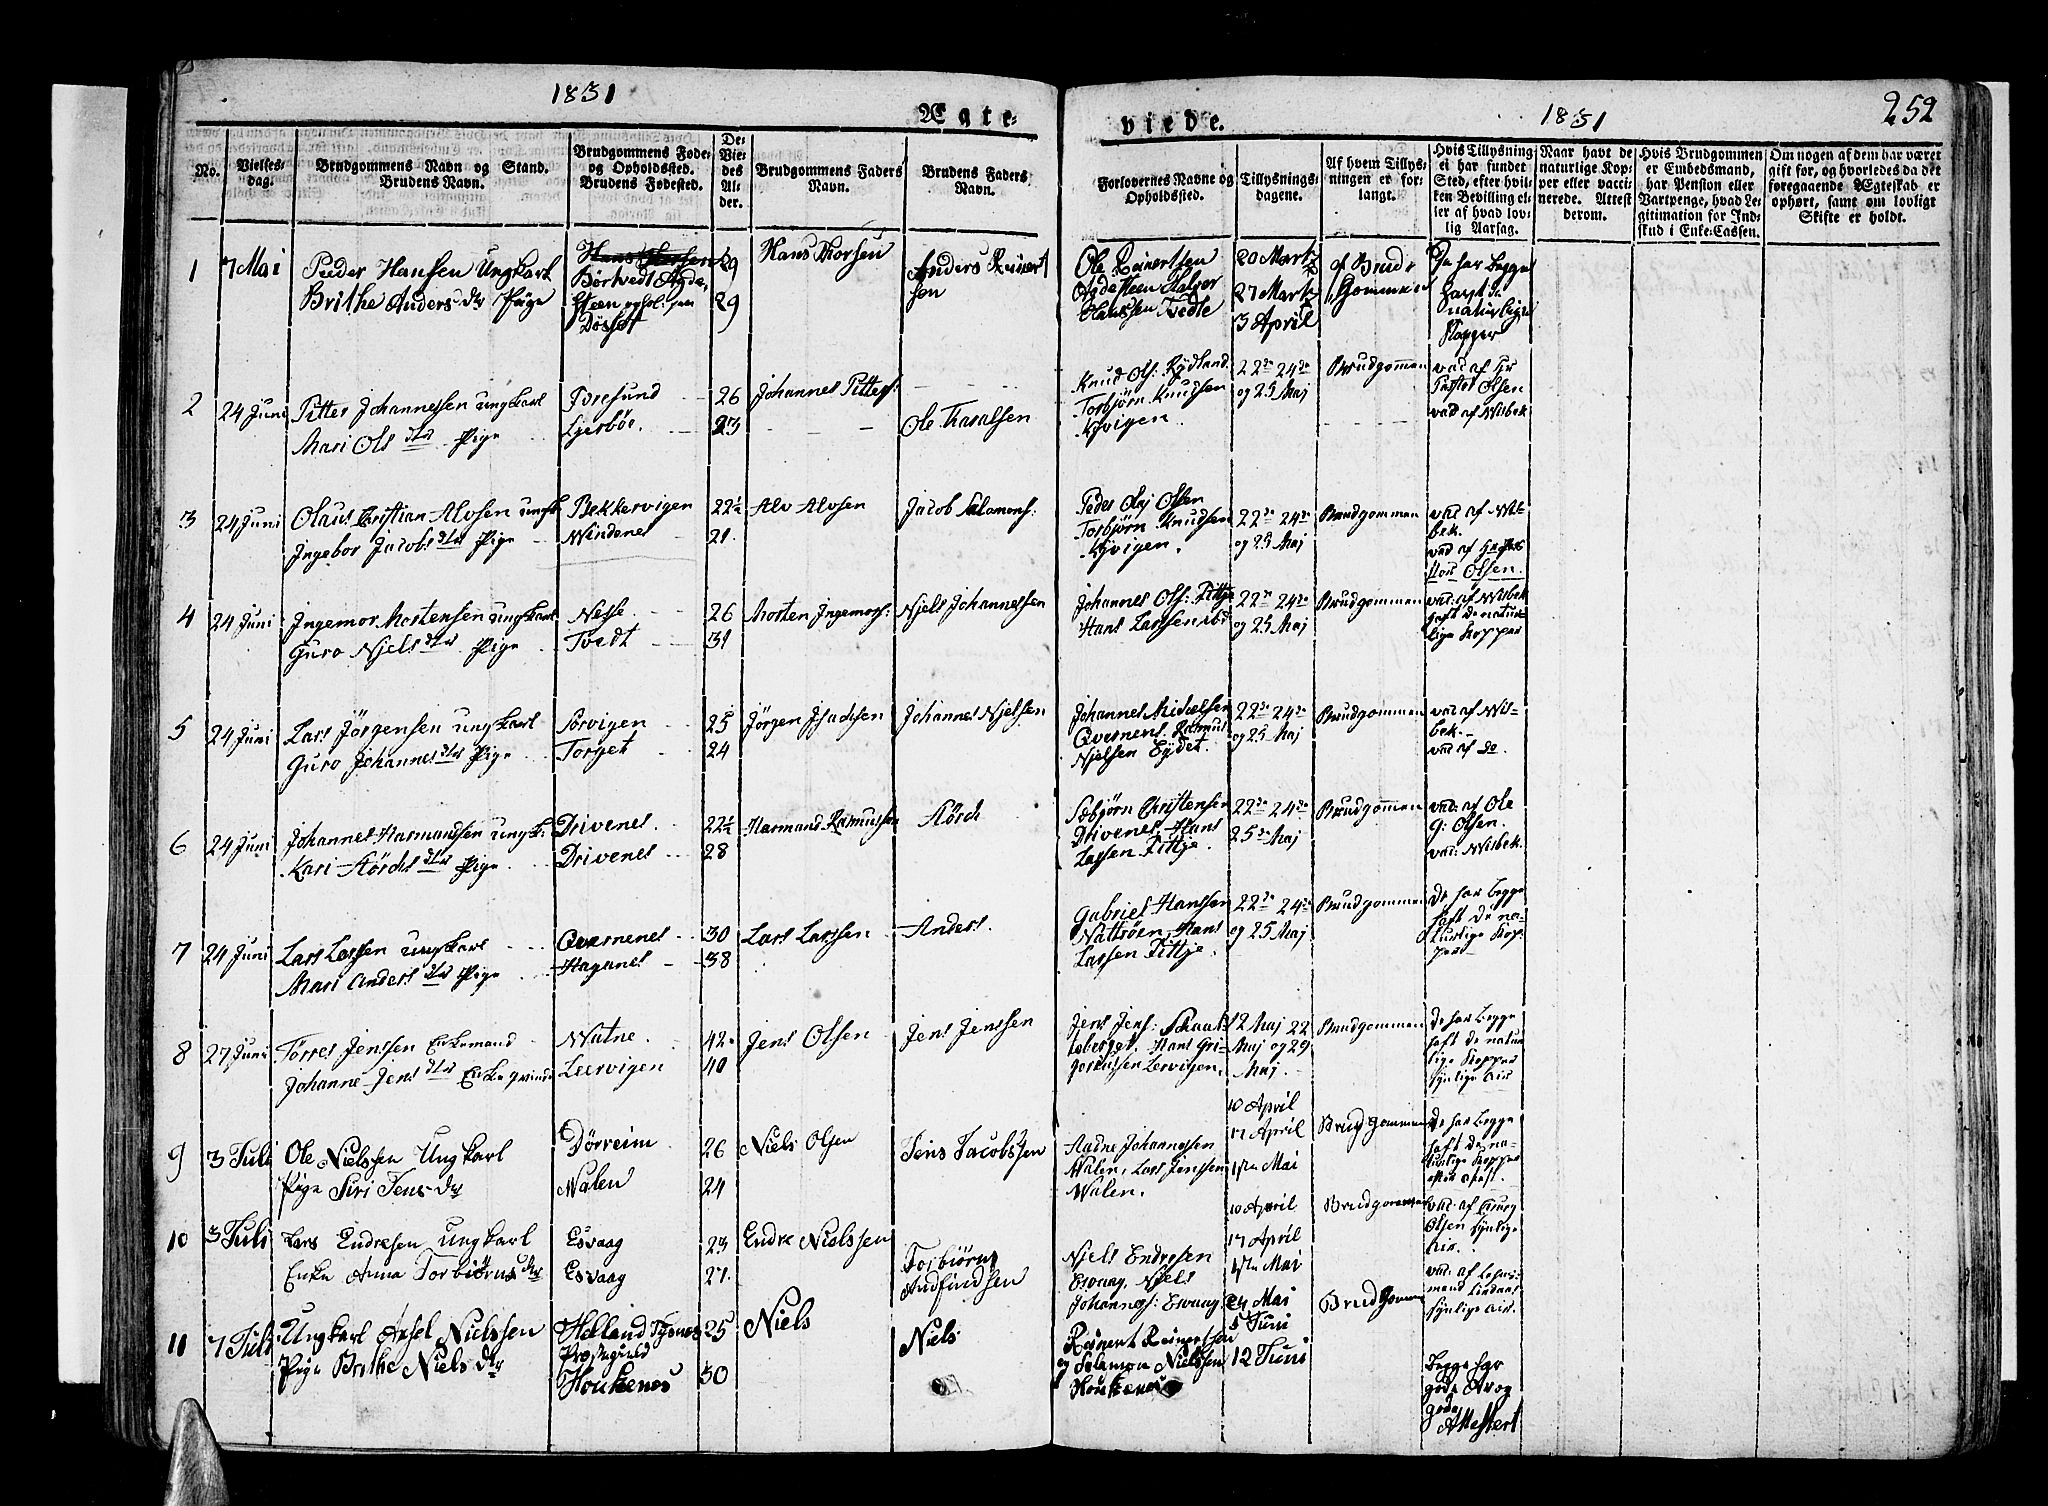 1831
Ægte-
viede.
1831
252
No.
Vielses-
dag.
Brudgommens Navn og Stand.
Brudens Navn.
Brudgommens Føde-
og Opholdssted.
Brudens Fødested.
De
Vie-
des
Al-
der.
Brudgommens Faders
Navn.
Brudens Faders
Navn.
Forlovernes Navne og
Opholdssted.
Tillysnings-
dagene.
Af hvem Tillys-
ningen er for-
langt.
Hvis Tillysning
ei har fundet
Sted, efter hvil-
ken Bevilling el-
ler af hvad lov-
lig Aarsag.
Naar havt de
naturlige Kop-
per eller vacci-
nerede. Attest
derom.
Hvis Brudgommen
er Embedsmand,
har Pension eller
Vartpenge, hvad Le-
gitimation for Ind-
skud i Enke-Cassen.
Om nogen af dem har været
gift før, og hvorledes da det
foregaaende Ægteskab er
ophørt, samt om lovligt
Skifte er holdt.
1 7 Mai
Peder Hansen Ungkarl
Brithe Anders dtr Pige
Børtvedt Agde-
steen
Døsset
29
29
Hans Thorsen
Anders Reinert
sen
Ole Reinertsen
Agdesteen Halvor
Hanssen Tvedte
20 Martz
27 Martz
3 April
af Brud-
gommen
De har begge
havt de
naturlige
Kopper
2 24 Juni
Pitter Johannessen ungkarl
Mari Ols dtr Pige
Foresund
Ljerbøe
26
23
Johannes Pitters:
Ole Haralssen
Knud Ols: Rydland
Torbjørn Knudsen
Kyvigen
22de 24de
og 25 Maj
Brudgommen
vac af Hr
Pastor Olsen
vac af Wisbek
3 24 Juni
Olaus Christian Alvsen ungk
Ingebor Jacobs dtr Pige
Bekkervigen
Windenes
22½
21
Alv Alvsen
Jacob Salamons:
Peder Olaj Olsen
Torbjørn Knudsen
Kyvigen.
22de 24de
og 25 Maj
Brudgommen
vac af Wis-
bek.
vac af Hr Pas
stor Olsen.
4 24 Juni
Ingemor Mortensen ungkarl
Guro Njels dtr Pige
Nesse
Tvedt
26
31
Morten Ingemors:
Njels Johannessen
Johannes Ols: Fittje
Hans Larssen ibd
22de 24de
og 25 Maj
Brudgommen
vac: af Wisbek
haft de natur-
lige Kopper
5 24 Juni
Lars Jörgensen ungkarl
Guro Johannes dtr Pige
Sørvigen
Torget
25
24
Jörgen Isacksen
Johannes Njelsen
Johannes Mickelsen
Qversnes. Rasmus
Njelsen Eydet.
22de 24de
og 25 Maj
Brudgommen
vac af Wis-
bek.
vac af do
6 24 Juni
Johannes Harmandsen ungk:
Kari Størks dtr Pige
Drivenes.
Drivenes
22½
28
Harmand Rasmussen
Størck
Sæbjørn Christensen
Drivenes. Hans
Larssen Fittje.
22de 24de
25de Maj
Brudgommen
vac: af Ole
G: Olsen.
vac: Wisbek.
7 24 Juni
Lars Larssen ungkarl
Mari Anders dtr Pige
Qversnes
Haganes
30
38
Lars Larssen
Anders.
Gabriel Hanssen
Nattröen, Hans
Larssen Fittje.
22de 24de
og 25 Maj
Brudgommen
de har begge
haft de na-
turlige Kop-
per
8 27 Juni
Törres Jenssen Enkemand
Johanne Jens dtr Enke qvinde
Watne.
Leervigen
42
40
Jens Olsen
Jens Jenssen
Jens Jens:
Hans Gri-
Lervigen.
12 Maj 22
Maj og 29
Maj.
Brudgommen
de har begge
haft de natur
lige Kopper
synlige Ar
9 3 Juli
Ole Nielssen Ungkarl
Pige Siri Jens dtr
Dörreim
Walen
26
24
Niels Olsen
Jens Jacobssen
Aadne Johannessen
Walen, Lars Jenssen
Walen.
10 April
17 April
1ste Mai
Brudgommen
de har begge
haft de na-
turlige Kopper
10 3 Juli
Lars Endresen Ungkarl
Enke Anna Torbiörns dtr
Esvaag
Esvaag
23
27.
Endre Nielssen
Torbiörns
Andfindsen
Njels Endresen
Esvaag, Njels
Johannes: Esvaag
10 April
17 April
1ste Mai
Brudgommen
vac: af
Olsen synlige
Ar.
vac: af Lehns-
mand
synlige Ar.
11 7 Juli
Ungkarl Axsel Nielssen
Pige Brithe Niels dtr
Helland Tysnes
Præstegield
Houkenes
25
30
Niels
Niels
Reinert Reinertsen
og Salamon Nielssen
Houkenes
24 Mai
5 Juni
12 Juni
Brudgommen
Begge har
gode Ar og
gode
Attester